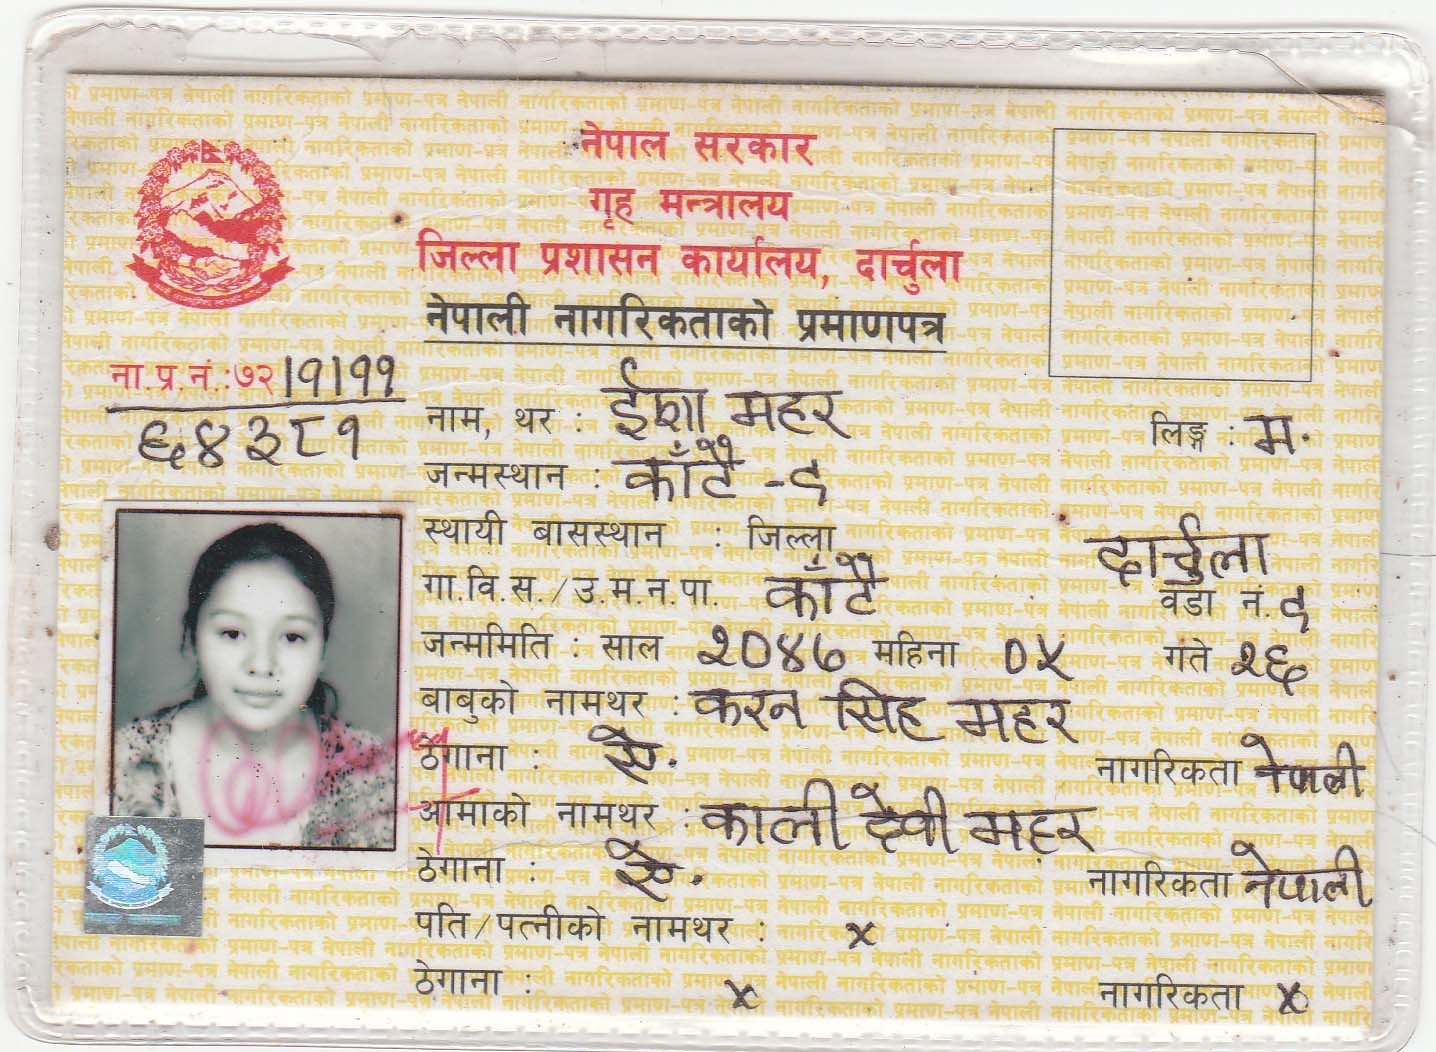 नेपाल सरकार
गृह मन्त्रालय
जिल्ला प्रशासन कार्यालय, दार्चुला
नेपाली नागरिकताको प्रमाणपत्र
ना.प्र.नं.:७२।१।११
६४३८१
नाम, थर : ईशा महर लिङ्ग : म.
जन्मस्थान : काँटै -९
स्थायी बासस्थान : जिल्ला दार्चुला
गा.वि.स./उ.म.न.पा. काँटै वडा नं. ९
जन्ममिति : साल २०४७ महिना ०५ गते २६
बाबुको नामथर : करन सिंह महर
ठेगाना : ऐ. नागरिकता नेपाली
आमाको नामथर : काली देवी महर
ठेगाना : ऐ. नागरिकता नेपाली
पति/पत्नीको नामथर : x
ठेगाना : x नागरिकता x